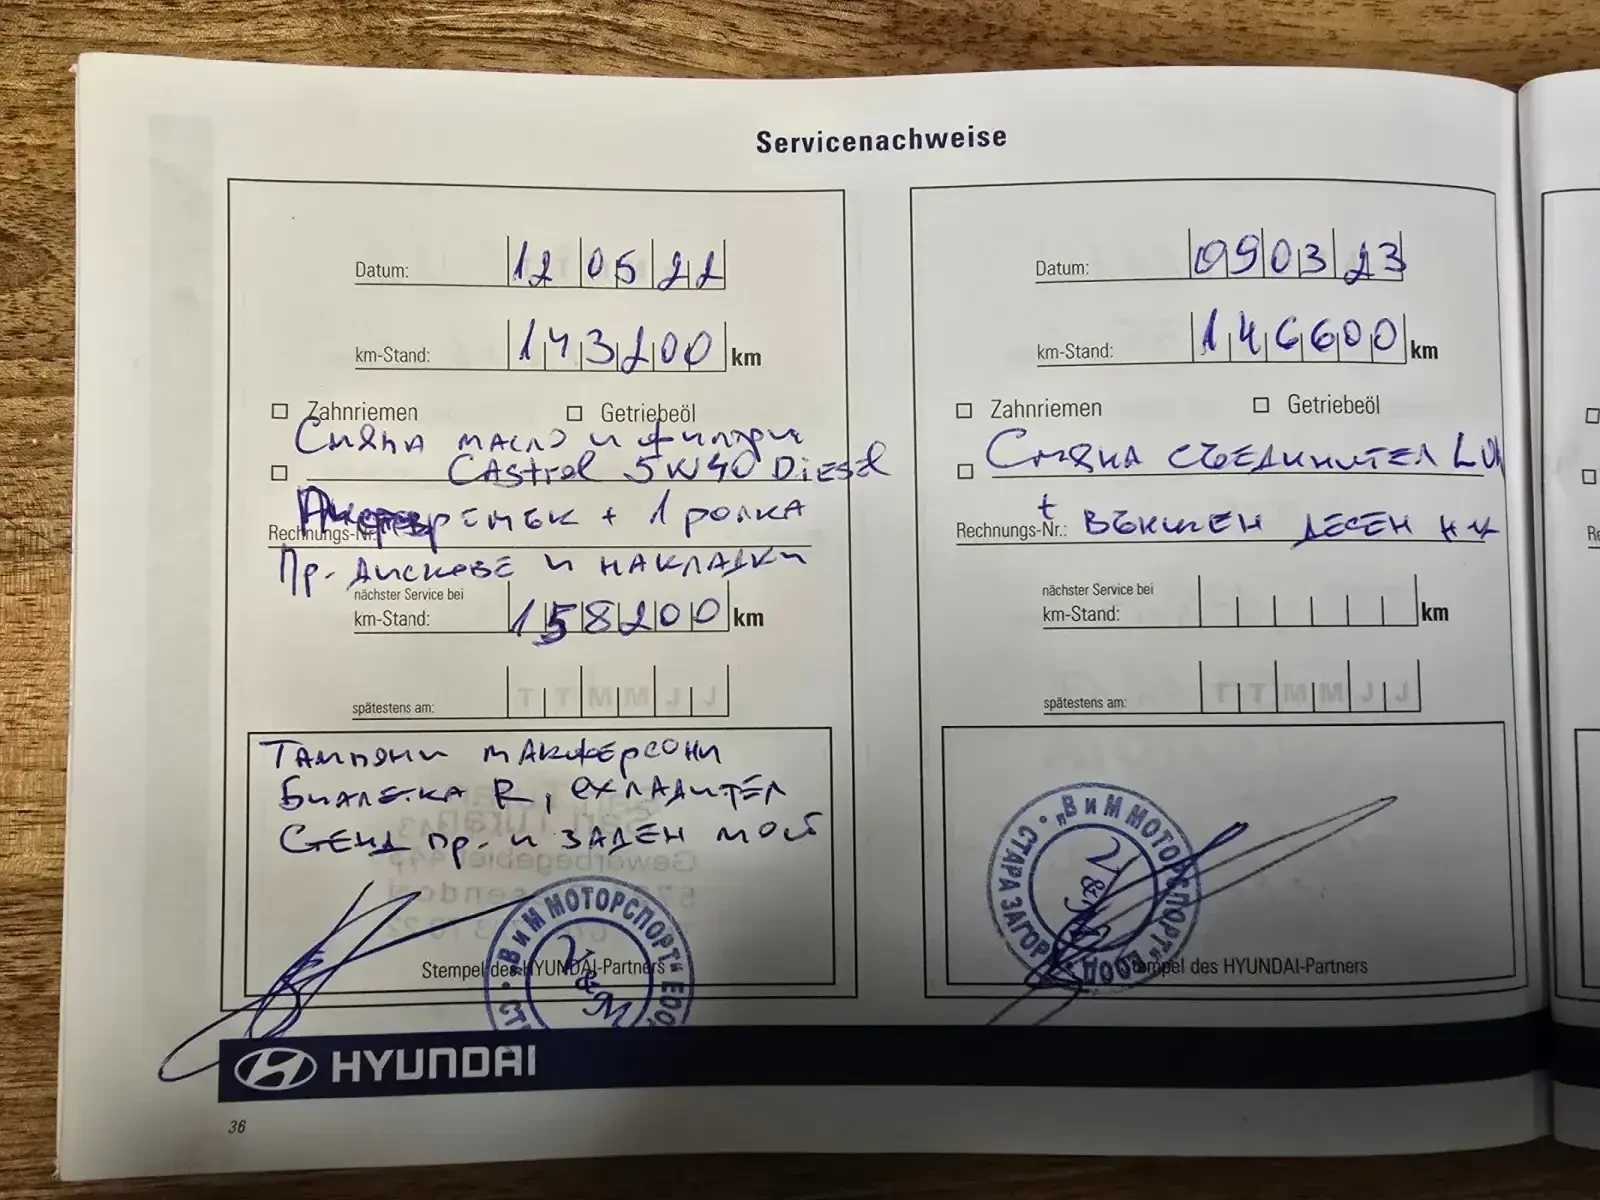 Servicenachweise
Datum: 12 05 22
km-Stand: 143200 km
Zahnriemen Getriebeöl
Смяна масло и филтри
Castrol 5W40 Diesel
ремък + 1 ролка
Rechnungs-Nr.
Пр. дискове и накладки
nächster Service bei
km-Stand: 158200 km
spätestens am: T T M M J J
Тампони макферсони
Биалетка R, охладител
Стенд пр. и заден мост
"В и М МОТОРСПОРТ" ЕООД
V&M
Stempel des HYUNDAI-Partners
Datum: 09 03 23
km-Stand: 146600 km
Zahnriemen Getriebeöl
Смяна съединител LUK
+
Rechnungs-Nr.: външен десен
nächster Service bei
km-Stand: km
spätestens am: T T M M J J
"В и М МОТОРСПОРТ" ЕООД • СТАРА ЗАГОРА
V&M
Stempel des HYUNDAI-Partners
HYUNDAI
36